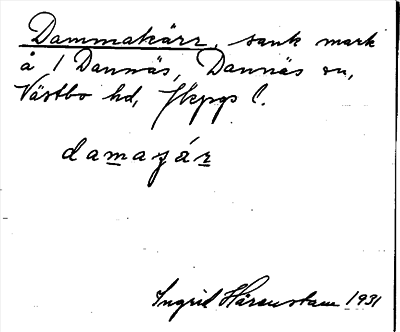 Dammakärr, sank mark
å 1 Dannäs, Dannäs sn,
Västbo hd, Jkpgs l.
damaʒár
Ingrid Härenstam 1931